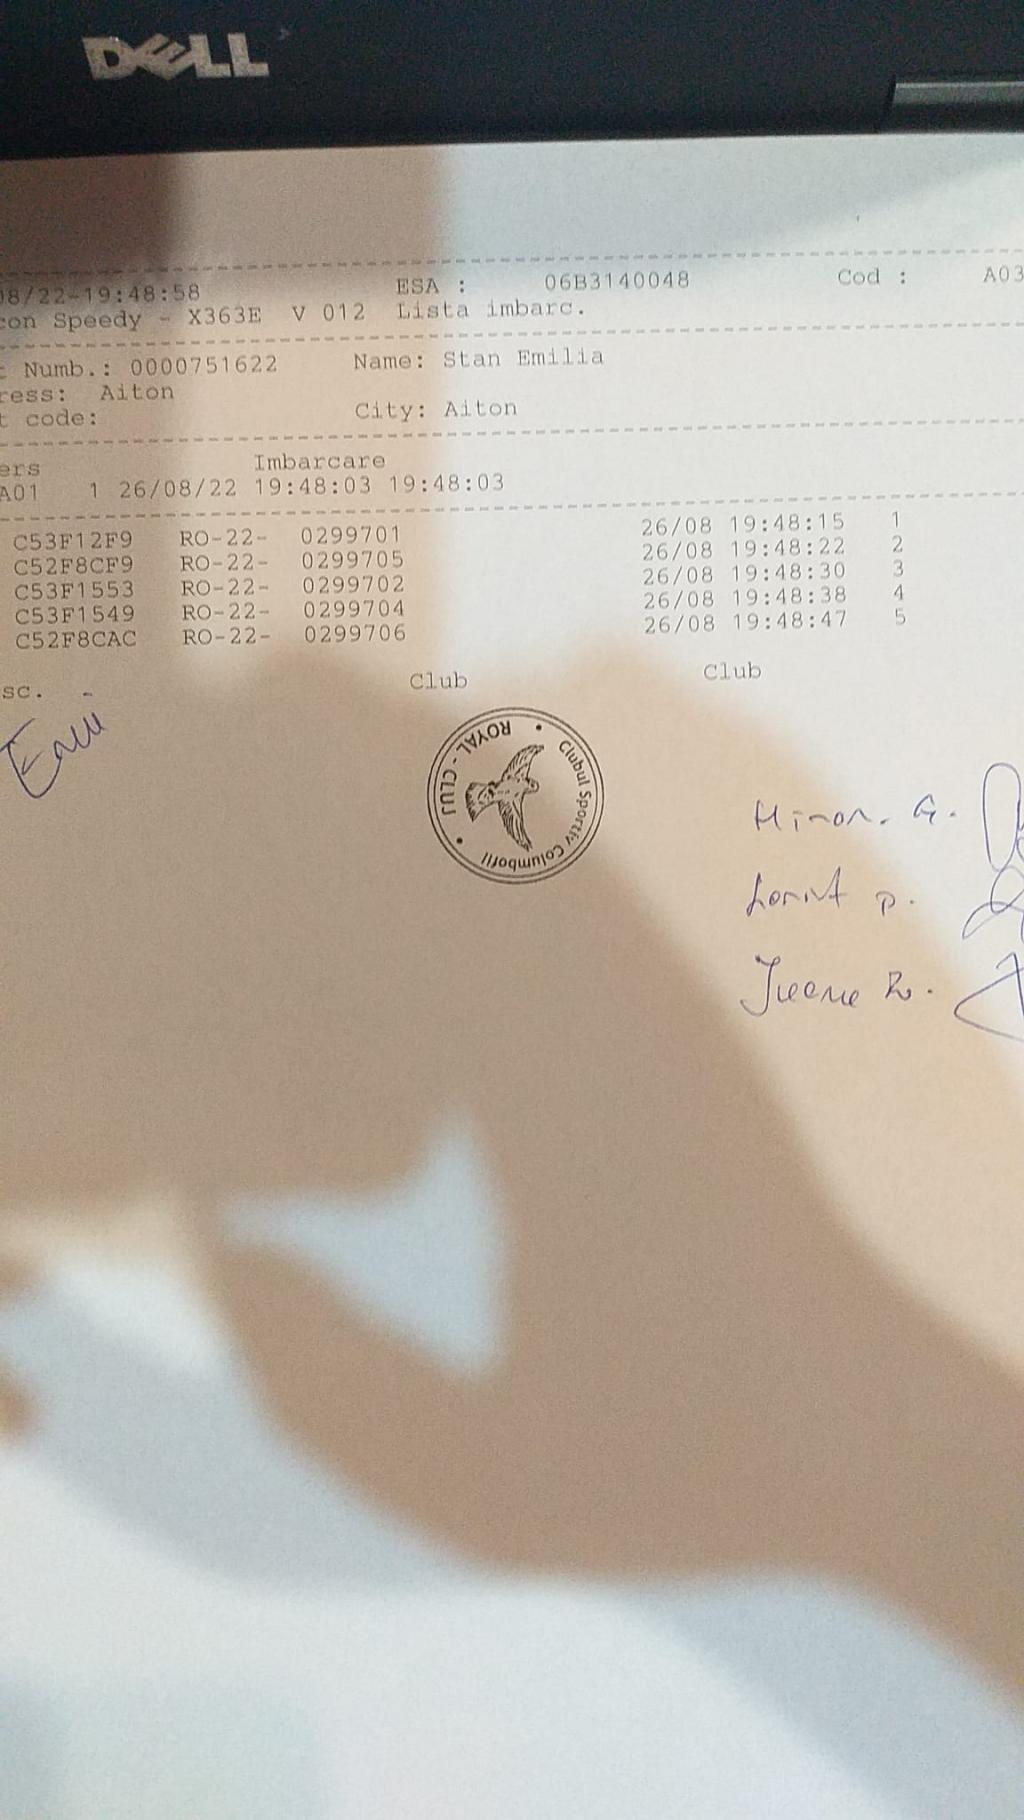 DELL
08/22-19:48:58 ESA : 06B3140048 Cod : A03
con Speedy - X363E V 012 Lista imbarc.
Numb.: 0000751622 Name: Stan Emilia
ress: Aiton
t code: City: Aiton
ers Imbarcare
A01 1 26/08/22 19:48:03 19:48:03
C53F12F9 RO-22- 0299701 26/08 19:48:15 1
C52F8CF9 RO-22- 0299705 26/08 19:48:22 2
C53F1553 RO-22- 0299702 26/08 19:48:30 3
C53F1549 RO-22- 0299704 26/08 19:48:38 4
C52F8CAC RO-22- 0299706 26/08 19:48:47 5
sc. Club Club
Clubul Sportiv Columbofil
ROYAL - CLUJ